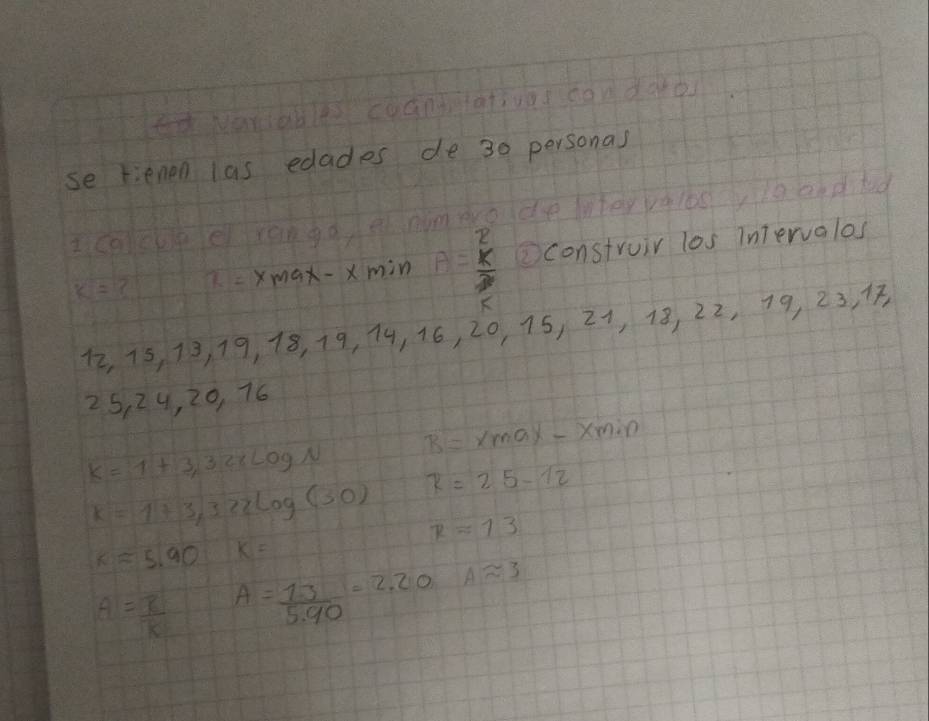 variables cuantitativas con datos.
se tienen las edades de 30 personas
1 calcule el rango, el numero de intervalos, la
K=? R = xmax - xmin A = R/K ② construir los intervalos
12, 15, 13, 19, 18, 19, 14, 16, 20, 15, 21, 18, 22, 19, 23, 17,
25, 24, 20, 16
K = 1 + 3,322 Log N R = xmax - xmin
K = 1 + 3,322 Log (30) R = 25 - 12
K ≈ 5.90 K = R = 13
A = R/K A = 13/5.90 = 2.20 A ≈ 3